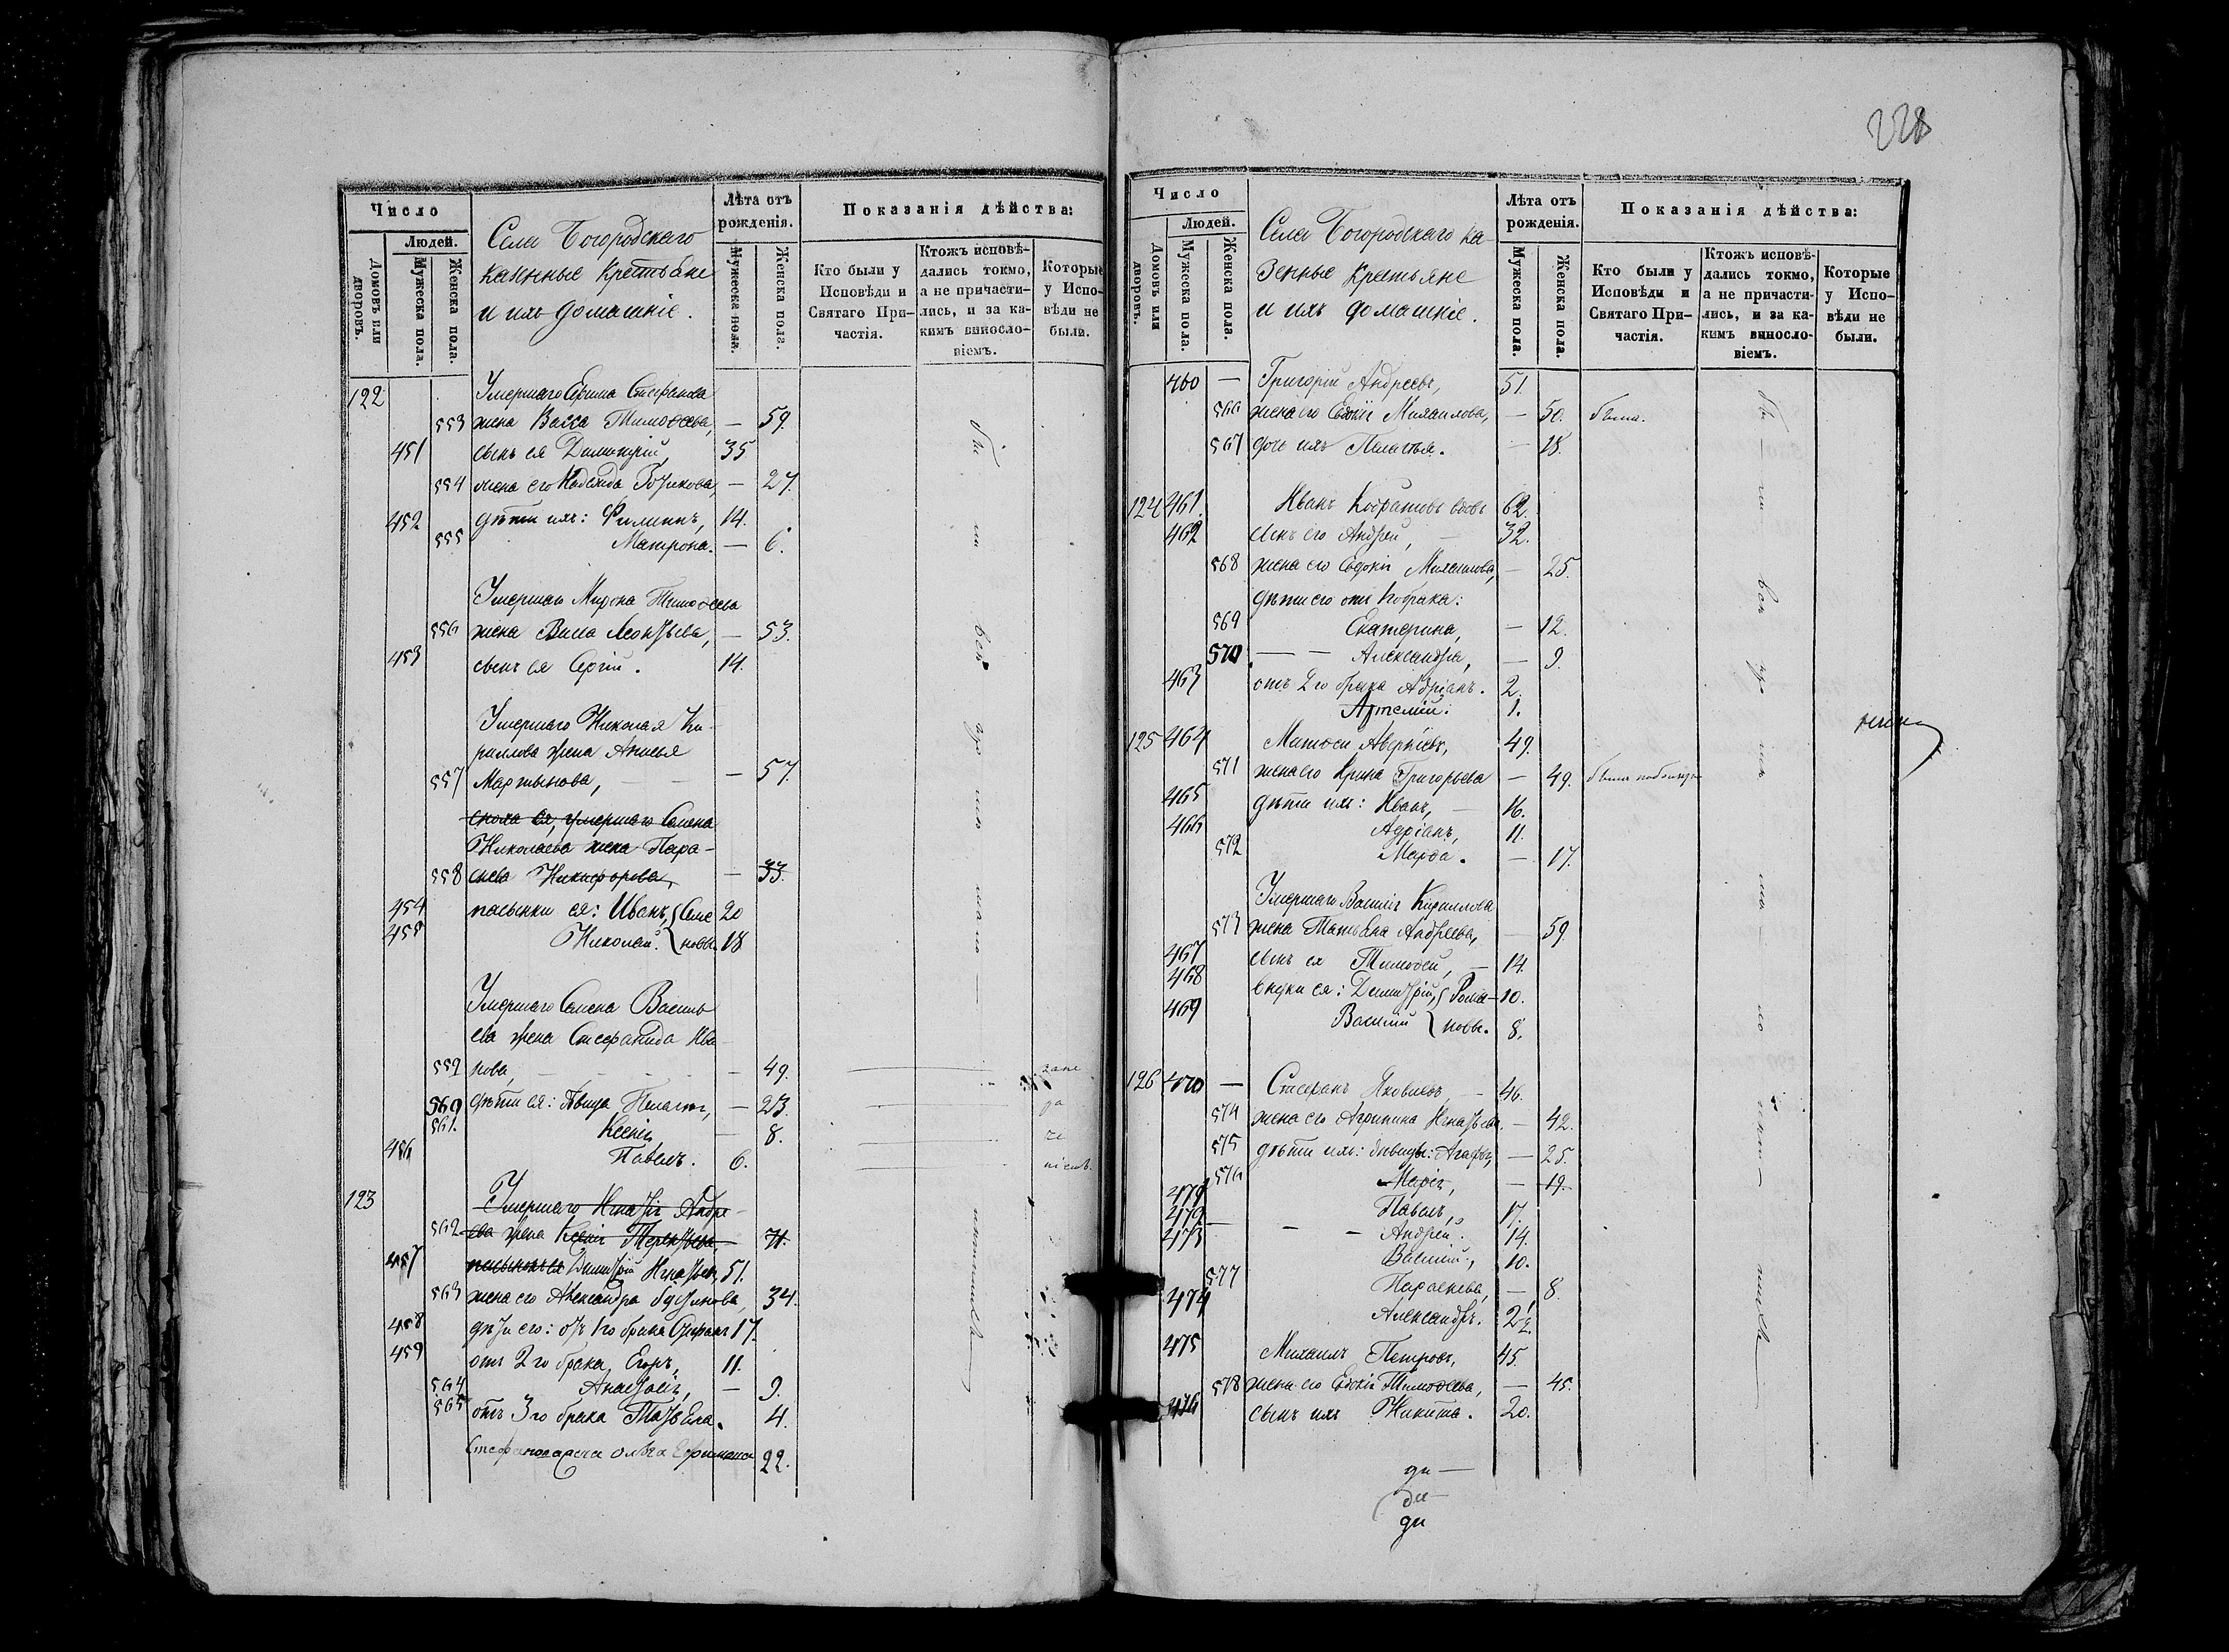 Число
Людей.
Домовъ или дворовъ.
Мужеска пола.
Женска пола.
Села Богородскаго
казенные крестьяне
и ихъ домашніе.
Лѣта отъ рожденія.
Мужеска пола.
Женска пола.
Показанія дѣйства:
Кто были у Исповѣди и Святаго Причастія.
Ктожъ исповѣдались токмо, а не причастились, и за какимъ винословіемъ.
Которые у Исповѣди не были.
122 Умершаго Ефима Стефанова
553 жена Васса Тимофеева, — 59.
451 сынъ ея Димитрій, 35
554 жена его Надежда — 27.
452 дѣти ихъ: Филиппъ, 14.
555 Матрона. — 6.
Умершаго Мирона Тимофеева
556 жена Васса Леонтьева, — 53.
453 сынъ ея Сергій. 14.
Умершаго Николая Ки-
риллова жена Анисья
557 Мартынова, — 57.
сноха ея, умершаго Семена
Николаева жена Пара-
558 скева Никифорова, — 33.
454 пасынки ея: Иванъ, Семе 20
455 Николай. новы. 18
Умершаго Семена Василь
ева жена Стефанида Ива
559 нова, — 49.
560 дѣти ея: дѣвица Пелагія, — 23.
561. Ксенія, — 8.
456 Павелъ. 6.
123 Умершаго Игнатія Андре-
562 ева жена Ксенія Терентьева, — 71.
457 пасынокъ ея Димитрій Игнатьевъ, 51.
563 жена его Александра 34.
458 дѣти его: отъ 1го брака Стефанъ 17.
459 отъ 2го брака, Егоръ, 11.
564 Анастасія, — 9.
565 отъ 3го брака Татьяна. 4.
Ольга Ефимова 22.
228
Число
Людей.
Домовъ или дворовъ.
Мужеска пола.
Женска пола.
Села Богородскаго ка-
зенные крестьяне
и ихъ домашніе.
Лѣта отъ рожденія.
Мужеска пола.
Женска пола.
Показанія дѣйства:
Кто были у Исповѣди и Святаго Причастія.
Ктожъ исповѣдались токмо, а не причастились, и за какимъ винословіемъ.
Которые у Исповѣди не были.
460 — Григорій Андреевъ, 51.
566 жена его Евдокія Михаилова, — 50. была.
567 дочь ихъ Пелагья. — 18.
124 461. Иванъ Кодратовъ вдовъ 62.
462 сынъ его Андрей, 32.
568 жена его Евдокія Михаилова, — 25.
дѣти его отъ 1го брака:
569 Екатерина, — 12.
570 — — Александра, — 9.
463 отъ 2го брака Адріанъ. 2.
Артемій. 1.
125 464 Матфей Аверкіевъ, 49.
571 жена его Ирина Григорьева — 49.
465 дѣти ихъ: Иванъ, — 16.
466 Адріанъ, 11.
572 Марфа. — 17.
Умершаго Василія Кириллова
573 жена Татьяна Андреева, — 59
467 сынъ ея Тимофей, — 14.
468 внуки ея: Димитрій, Рома- 10.
469 Василій новы. 8.
126 470 — Стефанъ Яковлевъ, — 46.
574 жена его Агрипина Игнатьева. — 42.
575 дѣти ихъ: дѣвицы: Агафія, — 25.
576 Марія, — 19.
471 Павелъ, 17.
472 — — — Андрей. 14.
473 Василій, 10.
577 Параскева, — 8.
474 Александръ. 2½.
475 Михаилъ Петровъ, 45.
578 жена его Евдокія Тимофеева, — 45.
476 сынъ ихъ Никита. 20.
ди —
ди —
ди